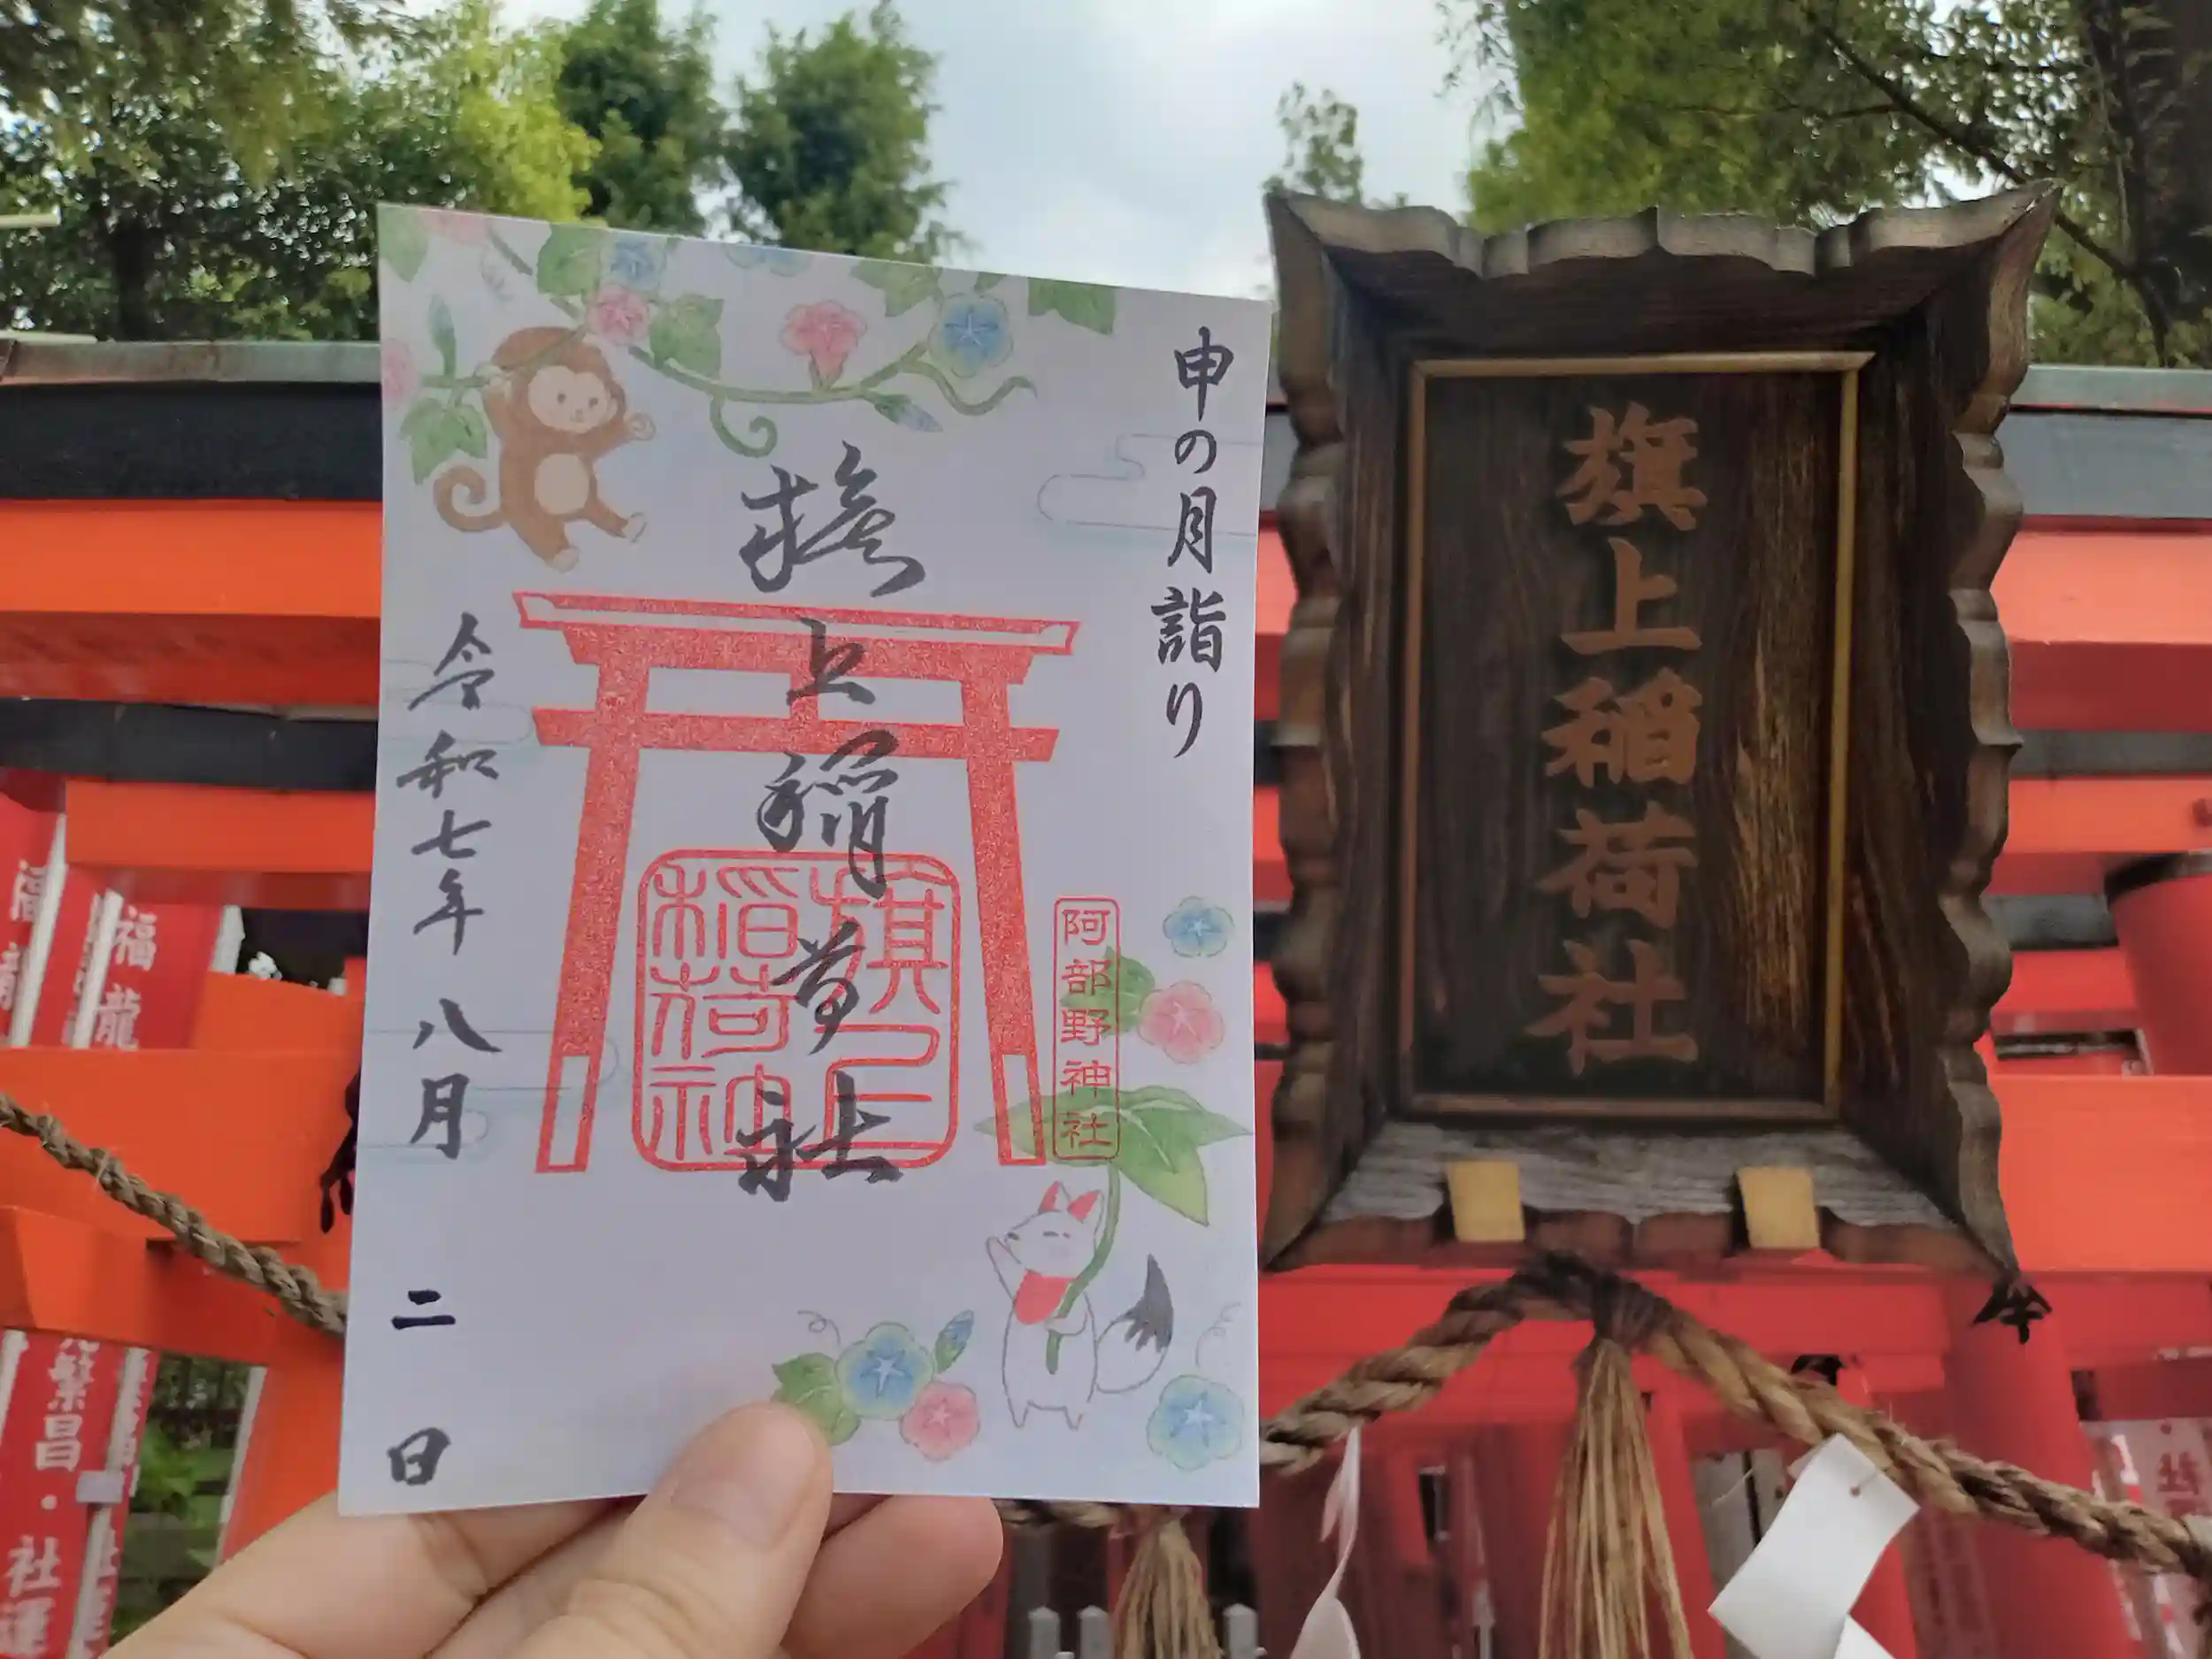 申の月詣り
旗上稲荷社
令和七年 八月 二 日
旗上
稲荷神
阿部野神社
旗上稲荷社
福
福龍
繁昌・社運